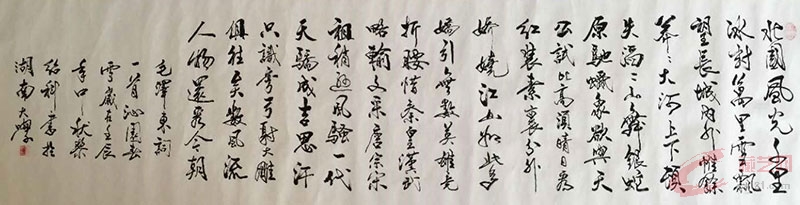 北國風光千里
冰封萬里雪飄
望長城內外惟餘
莽莽大河上下頓
失滔滔山舞銀蛇
原馳蠟象欲與天
公試比高須晴日看
紅裝素裹分外
嬌嬈江山如此多
嬌引無數英雄竞
折腰惜秦皇漢武
略輸文采唐宗宋
祖稍遜風騷一代
天驕成吉思汗
只識彎弓射大雕
俱往矣數風流
人物還看今朝
毛澤東詞
一首沁園春
雪歲在壬辰
秋
科書於
湖南大學